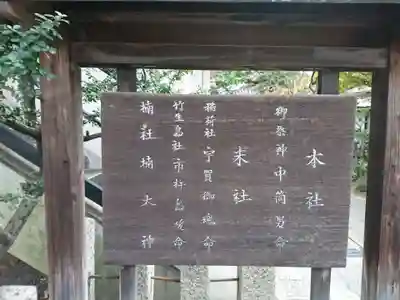 本社
御祭神中筒男命
末社
稲荷社宇賀御魂命
竹生島社市杵島姫命
楠社楠大神